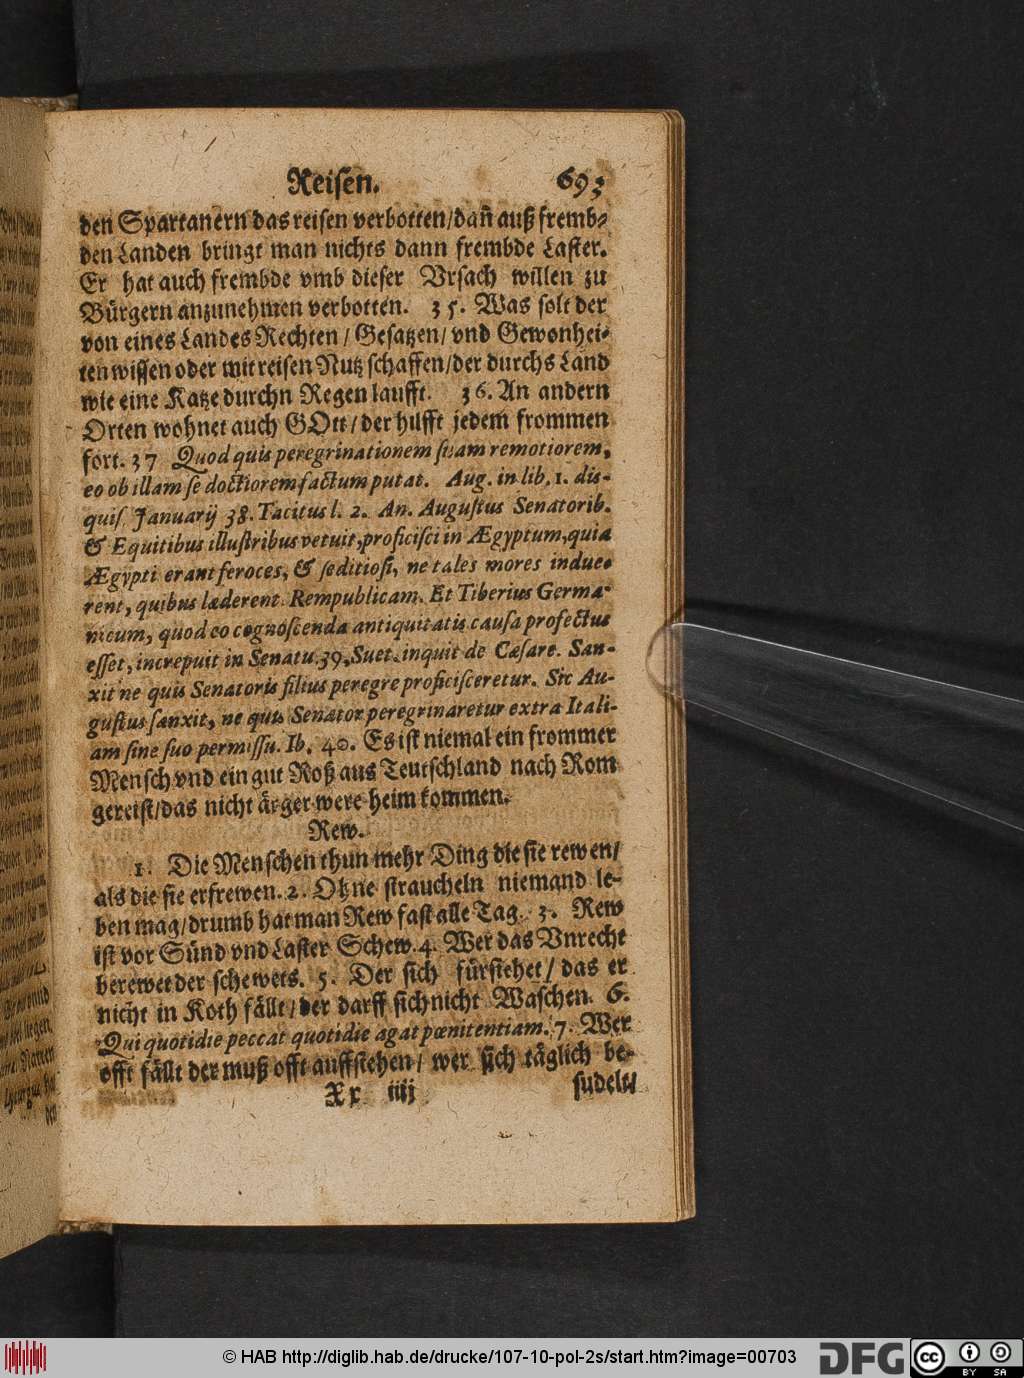 Reisen. 693
den Spartanern das reisen verbotten/dañ auß fremb⸗
den Landen bringt man nichts dann frembde Laster.
Er hat auch frembde vmb dieser Vrsach willen zu
Bürgern anzunehmen verbotten. 35. Was solt der
von eines Landes Rechten / Gesatzen / vnd Gewonhei⸗
ten wissen oder mit reisen Nutz schaffen/der durchs Land
wie eine Katze durchn Regen laufft. 36. An andern
Orten wohnet auch GOtt / der hilfft jedem frommen
fort. 37 Quod quis peregrinationem suam remotiorem,
eo ob illam se doctiorem factum putat. Aug. in lib. 1. dis-
quis. Januarij 38. Tacitus l. 2. An. Augustus Senatorib.
& Equitibus illustribus vetuit, proficisci in Ægyptum, quia
Ægypti erant feroces, & seditiosi, ne tales mores indue-
rent, quibus læderent Rempublicam. Et Tiberius Germa-
nicum, quod eo cognoscenda antiquitatis causa profectus
esset, increpuit in Senatu. 39. Suet. inquit de Cæsare. San-
xit ne quis Senatoris filius peregre proficisceretur. Sic Au-
gustus sanxit, ne quis Senator peregrinaretur extra Itali-
am sine suo permissu. Ib. 40. Es ist niemal ein frommer
Mensch vnd ein gut Roß aus Teutschland nach Rom
gereist/das nicht ärger were heim kommen.
Rew.
1. Die Menschen thun mehr Ding die sie rewen/
als die sie erfrewen. 2. Ohne straucheln niemand le-
ben mag/drumb hat man Rew fast alle Tag. 3. Rew
ist vor Sünd vnd Laster Schew. 4. Wer das Vnrecht
berewet der schewets. 5. Der sich fürsiehet / das er
nicht in Koth fällt / der darff sich nicht Waschen. 6.
Qui quotidie peccat quotidie agat pœnitentiam. 7. Wer
offt fällt der muß offt auffstehen / wer sich täglich be-
Xx iiij sudelt/
© HAB http://diglib.hab.de/drucke/107-10-pol-2s/start.htm?image=00703
DFG
cc BY SA